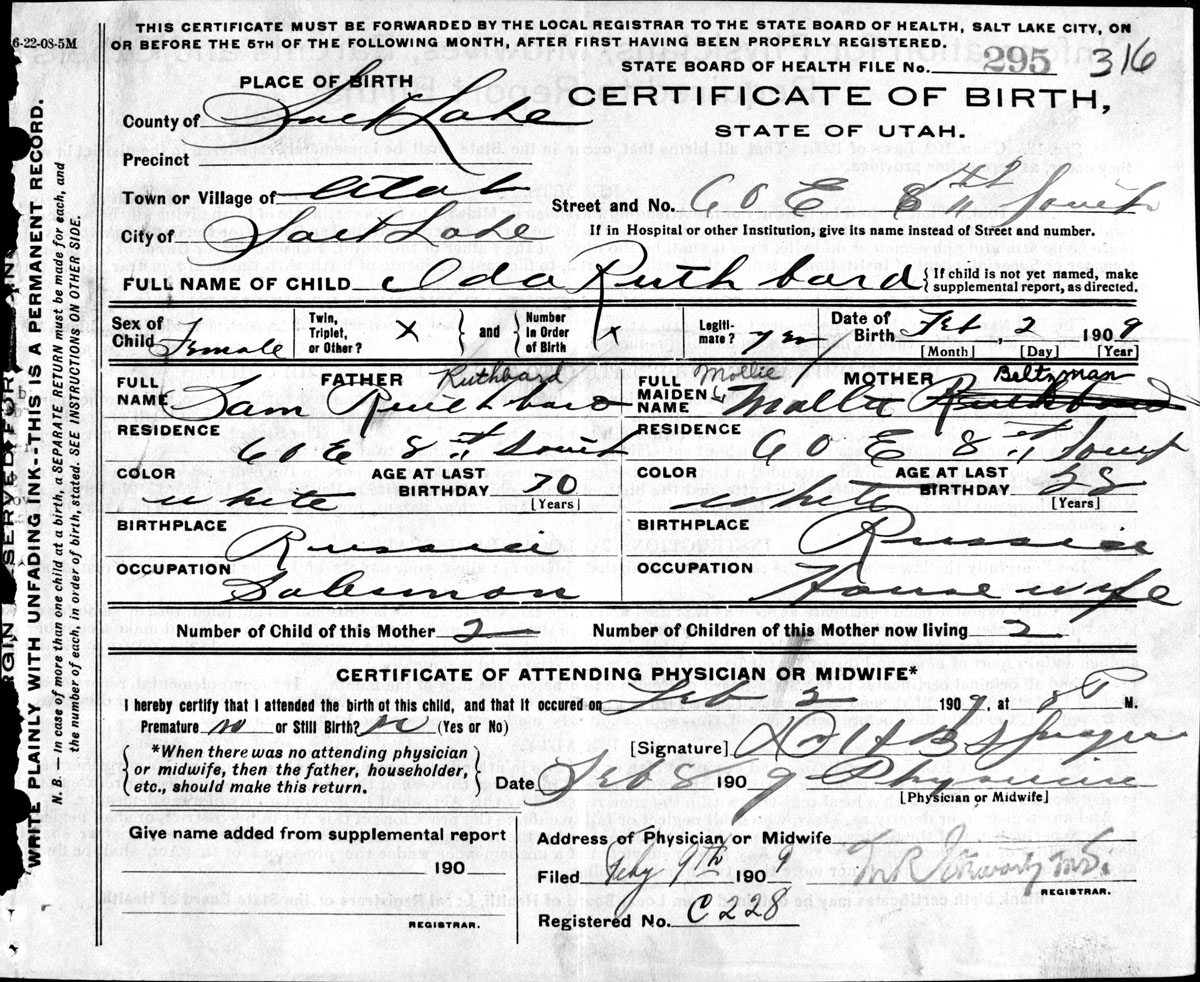 THIS CERTIFICATE MUST BE FORWARDED BY THE LOCAL REGISTRAR TO THE STATE BOARD OF HEALTH, SALT LAKE CITY, ON
6-22-08-5M OR BEFORE THE 5TH OF THE FOLLOWING MONTH, AFTER FIRST HAVING BEEN PROPERLY REGISTERED.
STATE BOARD OF HEALTH FILE No. 295 316
PLACE OF BIRTH
CERTIFICATE OF BIRTH,
County of Salt Lake
STATE OF UTAH.
Precinct
Town or Village of Utah
Street and No. 60 E 8th South
If in Hospital or other Institution, give its name instead of Street and number.
City of Salt Lake
FULL NAME OF CHILD Ida Ruthbard { If child is not yet named, make supplemental report, as directed.
Sex of Child Female Twin, Triplet, or Other? X } and { Number in Order of Birth Legitimate? Yes Date of Birth Feb, 2 1909
[Month] [Day] [Year]
FATHER
FULL NAME Sam Ruthbard
RESIDENCE 60 E 8th South
COLOR white AGE AT LAST BIRTHDAY 30 [Years]
BIRTHPLACE
Russia
OCCUPATION
Salesman
MOTHER
FULL MAIDEN NAME Mollie Beltzman
RESIDENCE 60 E 8th South
COLOR white AGE AT LAST BIRTHDAY [Years]
BIRTHPLACE
Russia
OCCUPATION
House wife
Number of Child of this Mother 2 Number of Children of this Mother now living 2
CERTIFICATE OF ATTENDING PHYSICIAN OR MIDWIFE*
I hereby certify that I attended the birth of this child, and that it occurred on Feb 2 1909, at 8 P M.
Premature no or Still Birth? no (Yes or No)
{ *When there was no attending physician or midwife, then the father, householder, etc., should make this return. }
[Signature] Dr H B
Date Feb 8 1909 Physician
[Physician or Midwife]
Give name added from supplemental report
190
REGISTRAR.
Address of Physician or Midwife
Filed Feby 9th 1909
REGISTRAR.
Registered No. C 228
WRITE PLAINLY WITH UNFADING INK--THIS IS A PERMANENT RECORD.
N.B.—In case of more than one child at a birth, a SEPARATE RETURN must be made for each, and
the number of each, in order of birth, stated. SEE INSTRUCTIONS ON OTHER SIDE.